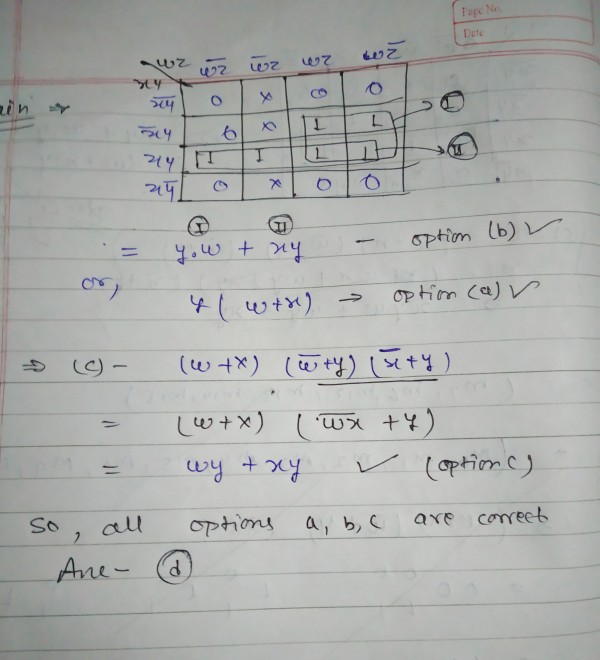 Page No.
Date
wz
xy
w̅z̅ w̅z wz wz̅
x̅y̅ 0 x 0 0
ain ⇒ x̅y 0 x 1 1 → I
xy 1 1 1 1 → II
xy̅ 0 x 0 0
I II
= y.w + xy - option (b) ✓
or,
y ( w+x) → option (a) ✓
⇒ (c) - (w+x) (w̅+y) (x̅+y)
= (w+x) (w̅x̅ + y)
= wy + xy ✓ (option c)
So, all options a, b, c are correct
Ans - (d)